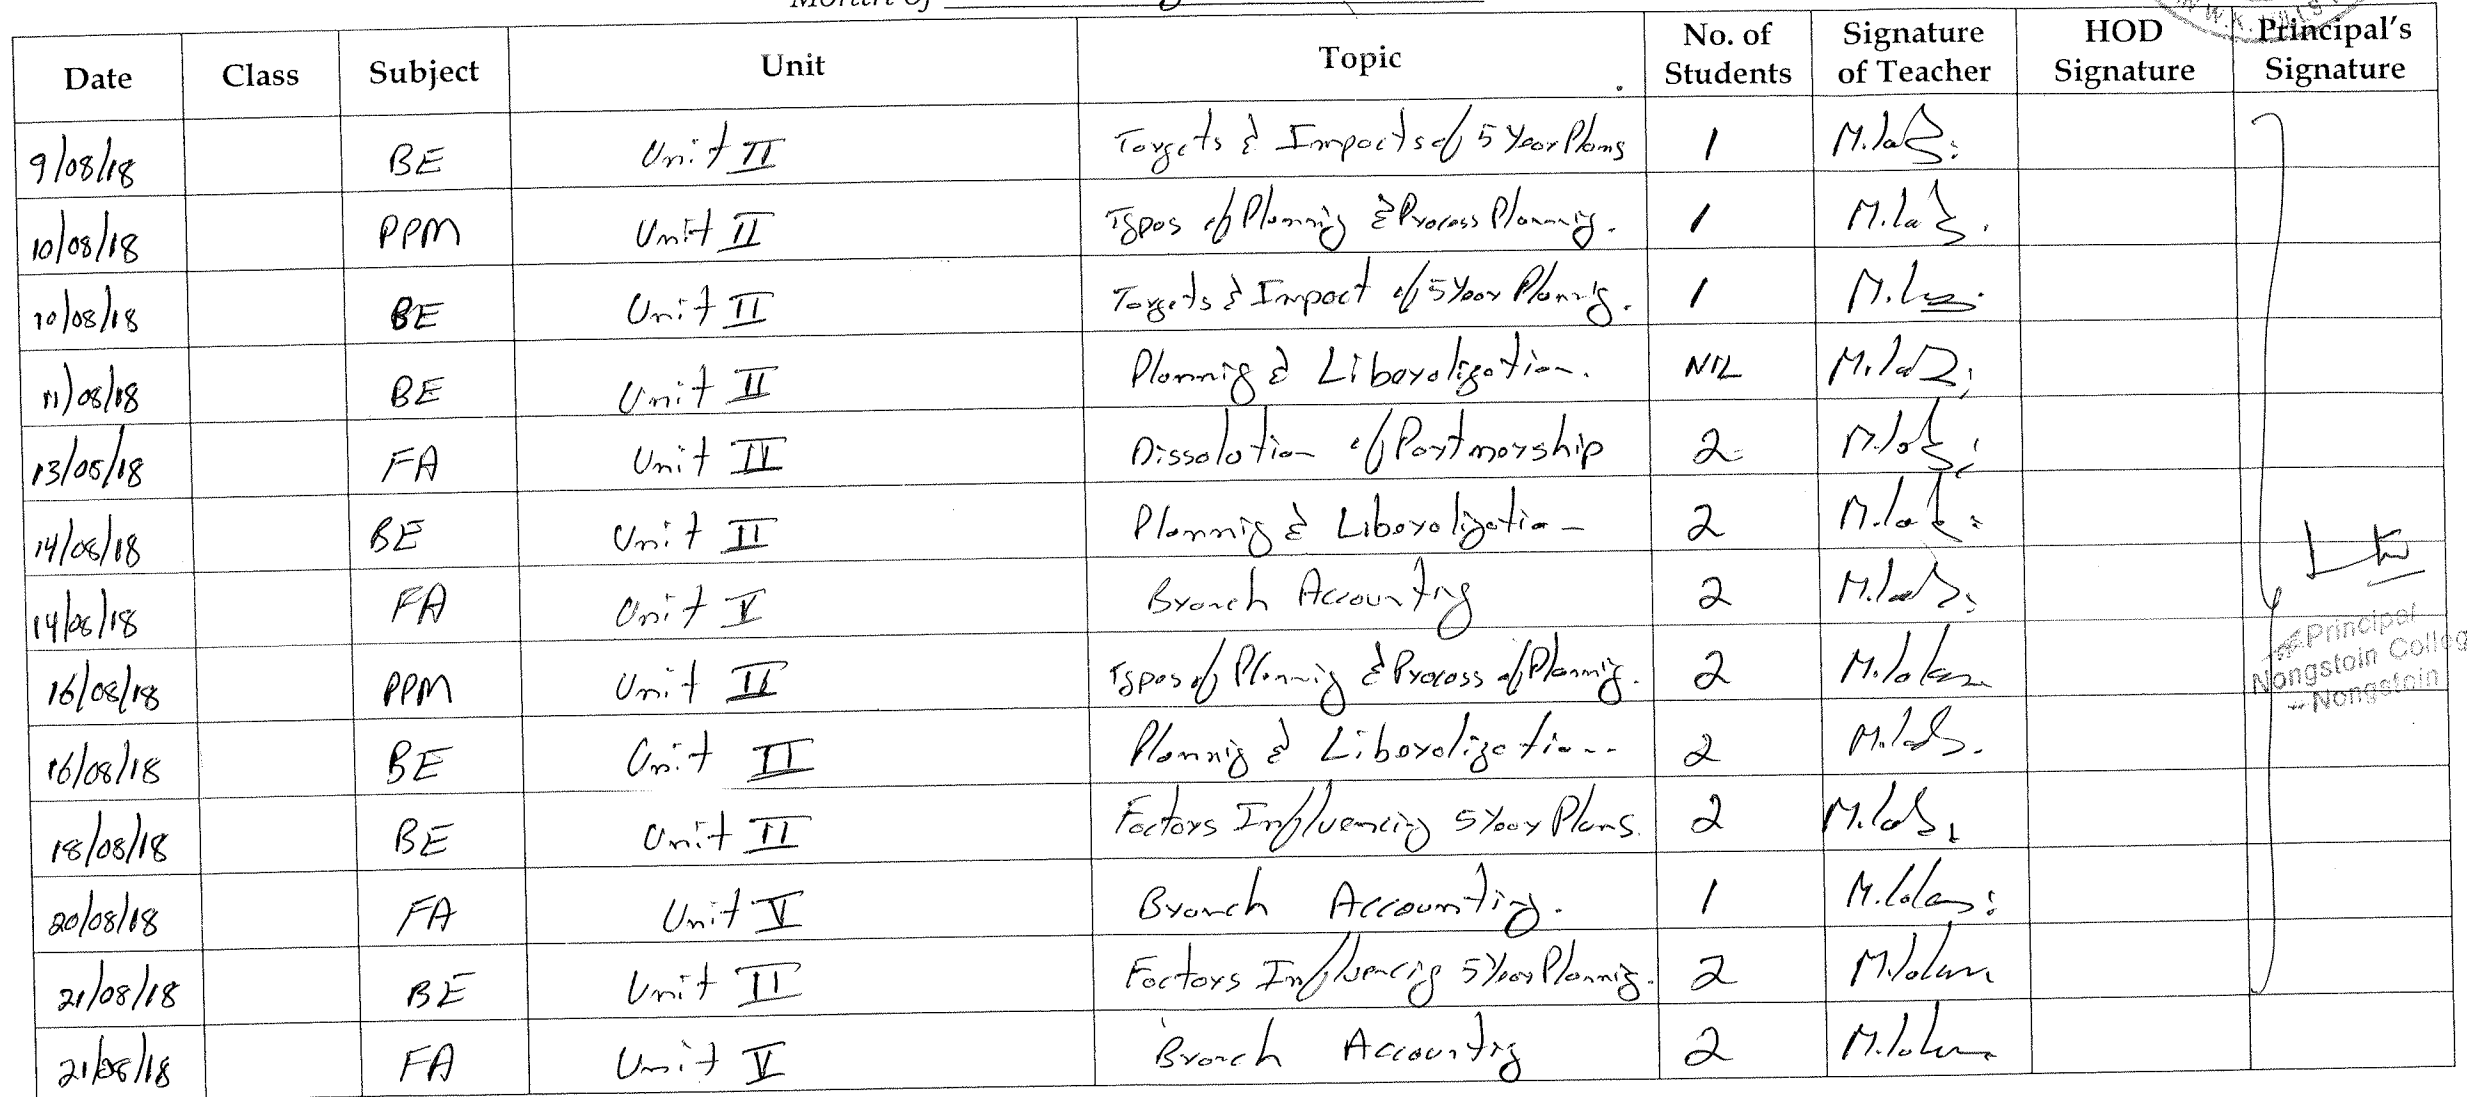 Month of
Date Class Subject Unit Topic No. of Students Signature of Teacher HOD Signature Principal's Signature
9/08/18 BE Unit II Targets & Impacts of 5 Year Plans 1
10/08/18 PPM Unit II Types of Plannig & Process Plannig. 1
10/08/18 BE Unit II Targets & Impact of 5 Year Plannig. 1
11/08/18 BE Unit II Plannig & Liberalization. NIL
13/08/18 FA Unit IV Dissolution of Partnership 2
14/08/18 BE Unit II Plannig & Liberalization 2
14/08/18 FA Unit V Branch Accounting 2
16/08/18 PPM Unit II Types of Plannig & Process of Plannig. 2
16/08/18 BE Unit II Plannig & Liberalization 2
18/08/18 BE Unit II Factors Influencing 5 Year Plans. 2
20/08/18 FA Unit V Branch Accounting. 1
21/08/18 BE Unit II Factors Influencig 5 Year Plannig. 2
21/08/18 FA Unit V Branch Accounting 2
Principal
Nongstoin Colleg
Nongstoin